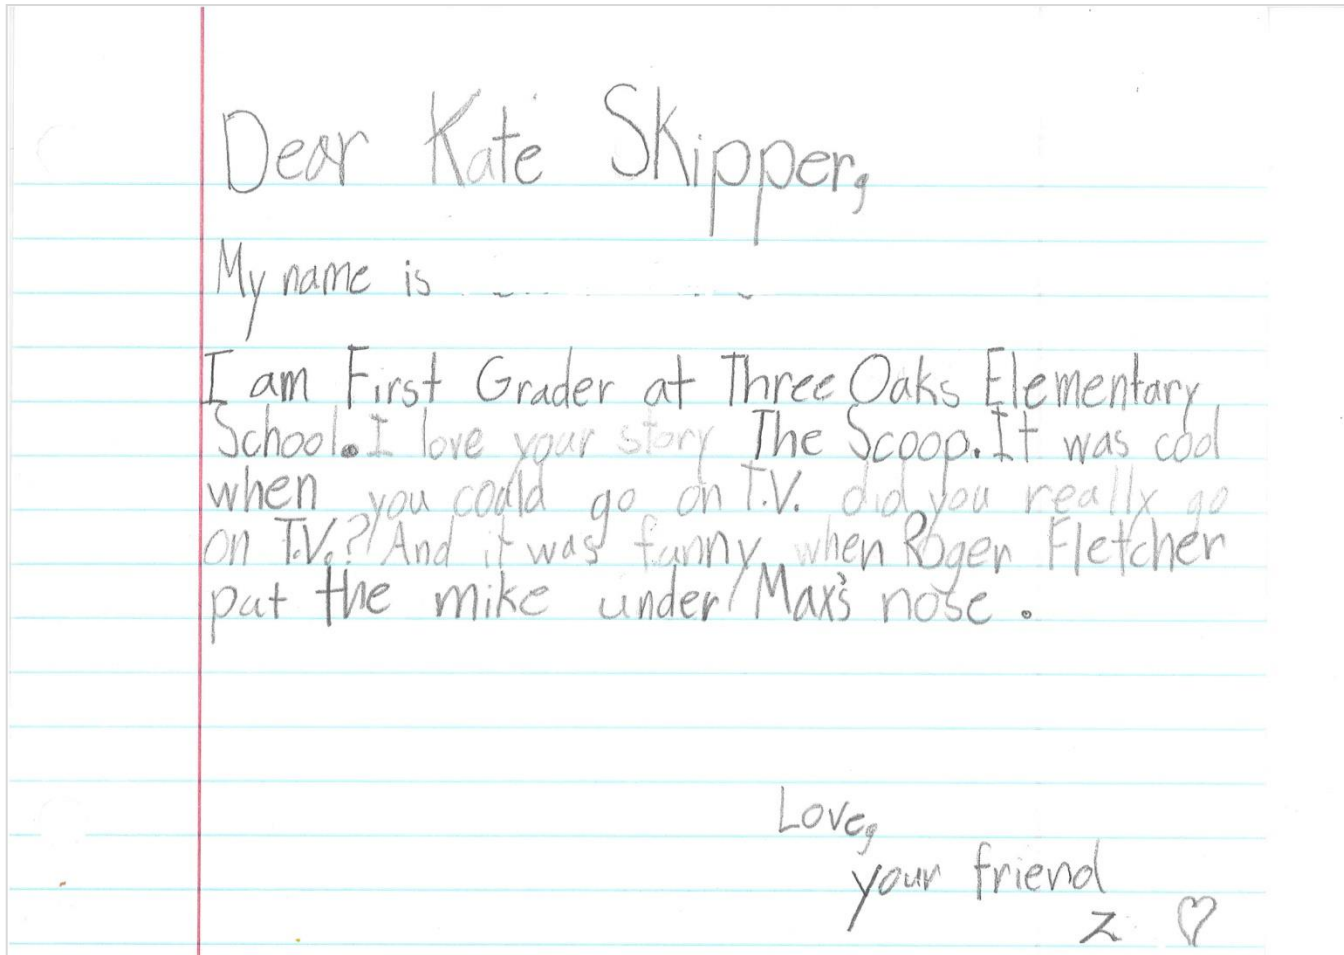 Dear Kate Skipper,
My name is
I am First Grader at Three Oaks Elementary
School. I love your story The Scoop. It was cool
when you could go on T.V. did you really go
on T.V.? And it was funny when Roger Fletcher
put the mike under Max's nose.
Love,
your friend
Z ♡